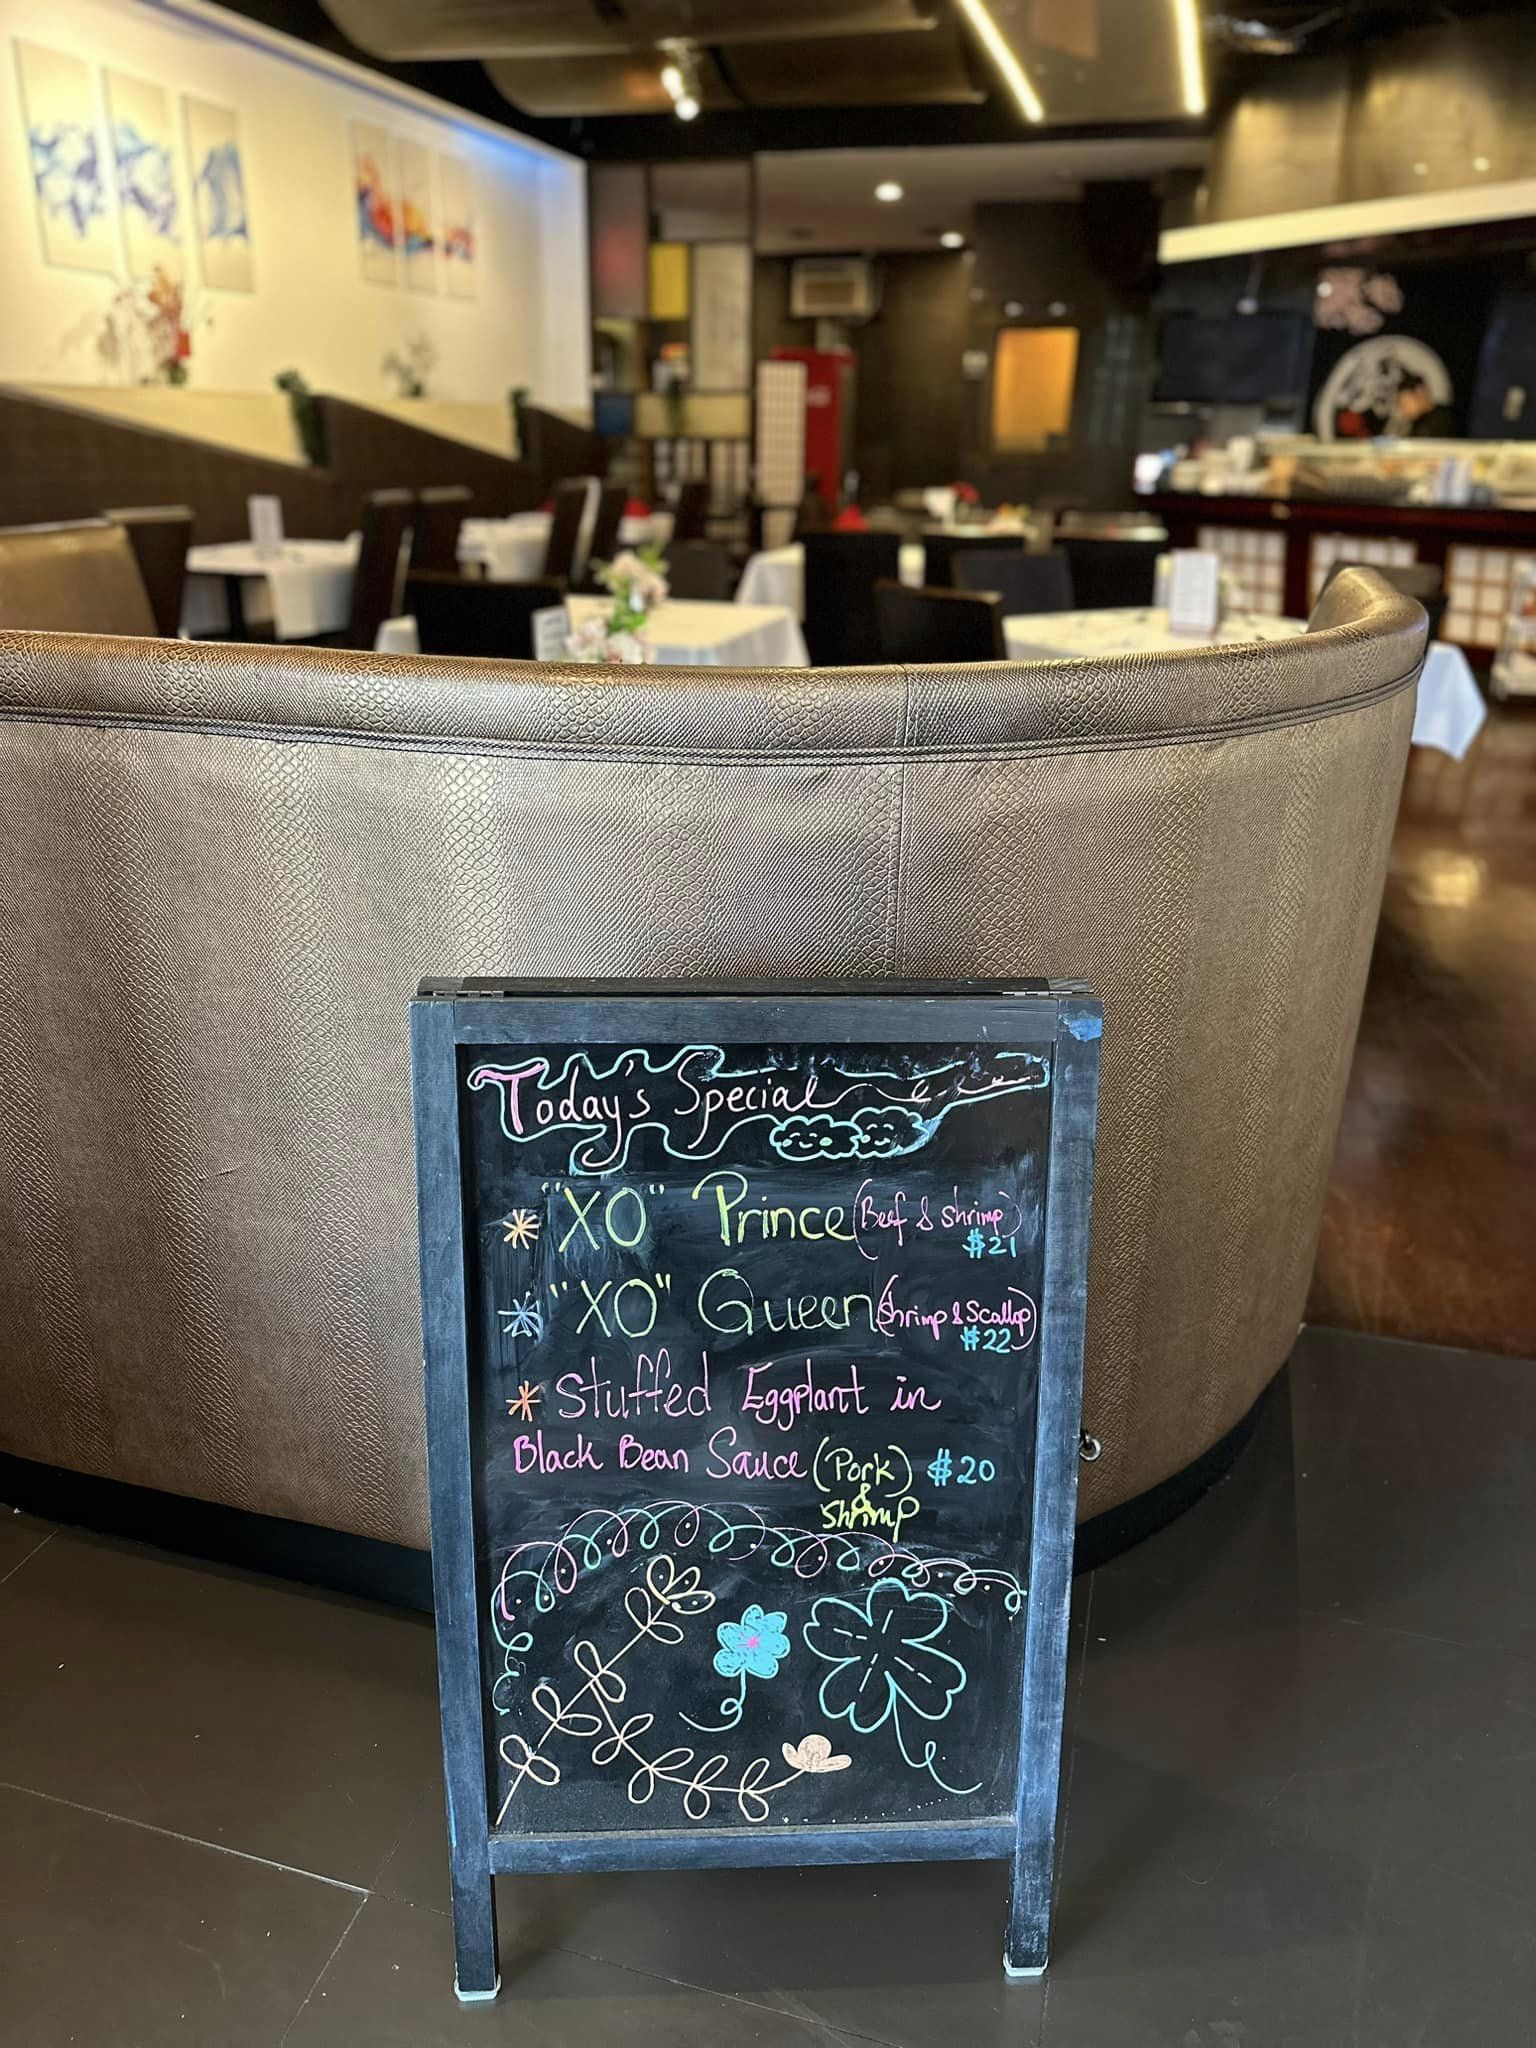 Today's Special
"XO" Prince (Beef & Shrimp)
$21
"XO" Queen (Shrimp & Scallop)
$22
Stuffed Eggplant in
Black Bean Sauce (Pork) $20
&
Shrimp